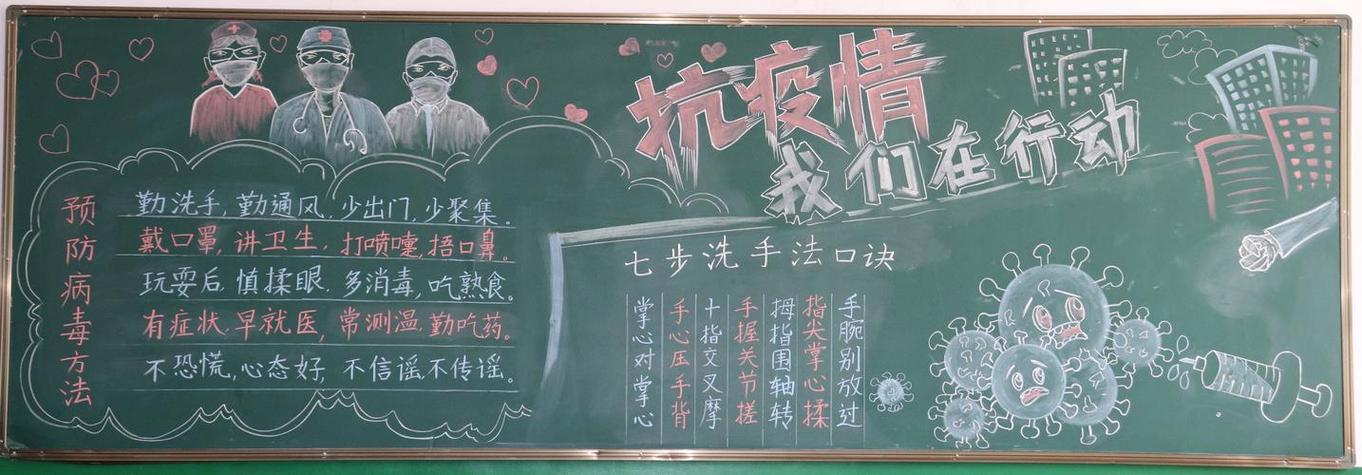 抗疫情
我们在行动
预防病毒方法
勤洗手,勤通风,少出门,少聚集。
戴口罩,讲卫生,打喷嚏,捂口鼻。
玩耍后,慎揉眼.多消毒,吃熟食。
有症状,早就医,常测温,勤吃药。
不恐慌,心态好,不信谣,不传谣。
七步洗手法口诀
掌心对掌心
手心压手背
十指交叉摩
手握关节搓
拇指围轴转
指尖掌心揉
手腕别放过